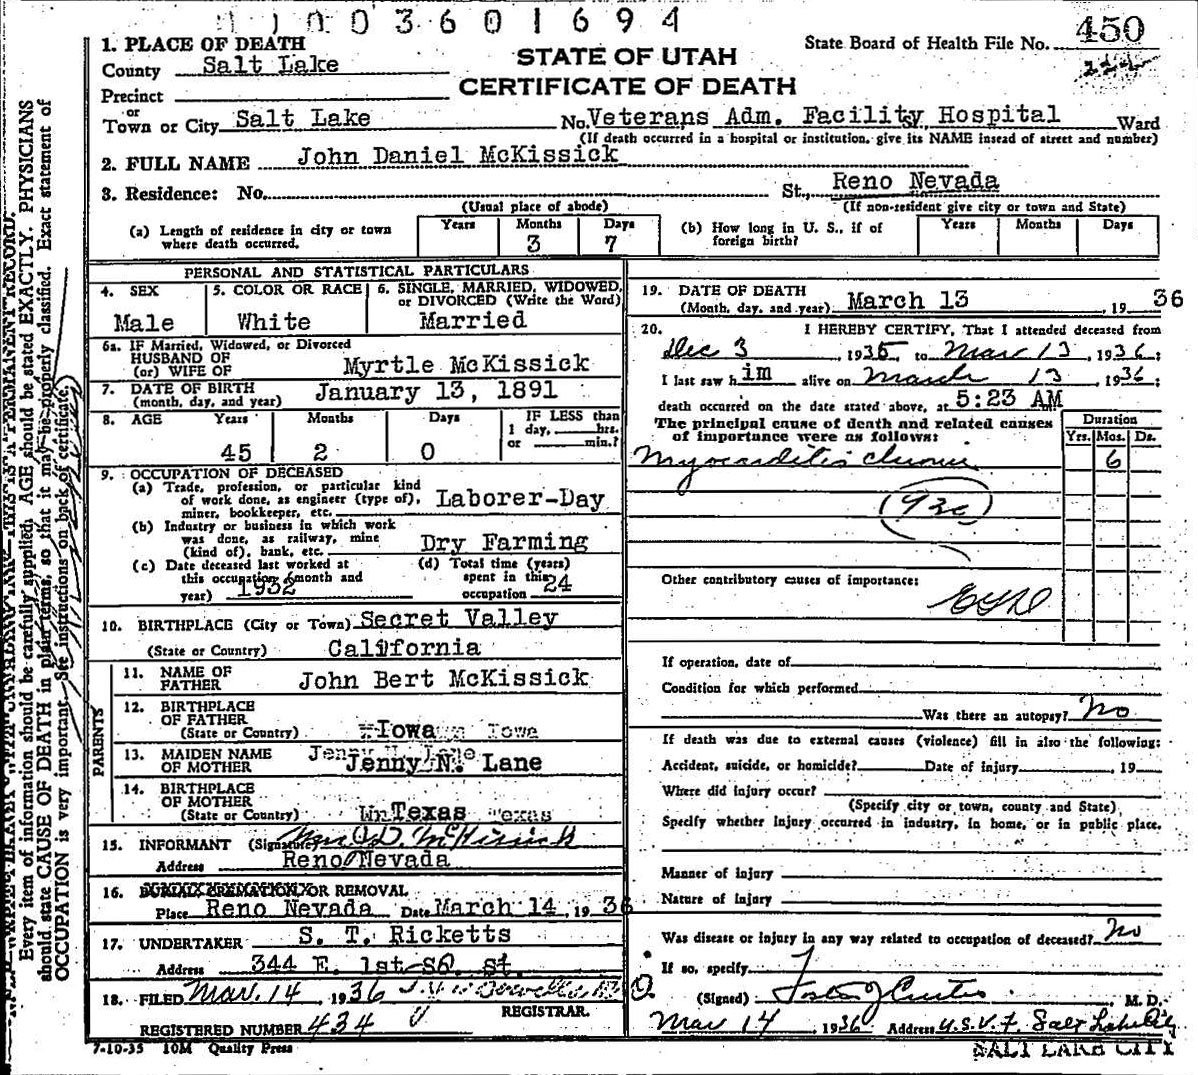 1003601694
STATE OF UTAH
CERTIFICATE OF DEATH
State Board of Health File No. 450
1. PLACE OF DEATH
County Salt Lake
Precinct
or
Town or City Salt Lake No. Veterans Adm. Facility Hospital Ward
(If death occurred in a hospital or institution, give its NAME insead of street and number)
2. FULL NAME John Daniel McKissick
3. Residence: No. St., Reno Nevada
(Usual place of abode) (If non-resident give city or town and State)
(a) Length of residence in city or town where death occurred. Years Months 3 Days 7
(b) How long in U. S., if of foreign birth? Years Months Days
PERSONAL AND STATISTICAL PARTICULARS
4. SEX Male
5. COLOR OR RACE White
6. SINGLE, MARRIED, WIDOWED, or DIVORCED (Write the Word) Married
6a. IF Married, Widowed, or Divorced
HUSBAND OF
(or) WIFE OF Myrtle McKissick
7. DATE OF BIRTH
(month, day, and year) January 13, 1891
8. AGE Years Months Days IF LESS than
1 day, hrs.
or min.?
45 2 0
9. OCCUPATION OF DECEASED
(a) Trade, profession, or particular kind
of work done, as engineer (type of),
miner, bookkeeper, etc. Laborer-Day
(b) Industry or business in which work
was done, as railway, mine
(kind of), bank, etc. Dry Farming
(c) Date deceased last worked at
this occupation (month and
year) 1932
(d) Total time (years)
spent in this
occupation 24
10. BIRTHPLACE (City or Town) Secret Valley
(State or Country) California
PARENTS
11. NAME OF
FATHER John Bert McKissick
12. BIRTHPLACE
OF FATHER
(State or Country) Iowa Iowa
13. MAIDEN NAME
OF MOTHER Jenny N. Lane
14. BIRTHPLACE
OF MOTHER
(State or Country) Texas Texas
15. INFORMANT (Signature) D. McKissick
Address Reno Nevada
16. BURIAL CREMATION OR REMOVAL
Place Reno Nevada Date March 14, 1936
17. UNDERTAKER S. T. Ricketts
Address 344 E. 1st So. St.
18. FILED Mar. 14, 1936
REGISTRAR.
REGISTERED NUMBER 434
7-10-35 10M Quality Press
19. DATE OF DEATH
(Month, day, and year) March 13, 1936
20. I HEREBY CERTIFY, That I attended deceased from
Dec 3, 1935, to Mar 13, 1936;
I last saw him alive on March 13, 1936;
death occurred on the date stated above, at 5:23 AM
The principal cause of death and related causes
of importance were as follows:
Duration
Yrs. Mos. Ds.
Myocarditis chronic 6
(92c)
Other contributory causes of importance:
If operation, date of
Condition for which performed
Was there an autopsy? No
If death was due to external causes (violence) fill in also the following:
Accident, suicide, or homicide? Date of injury, 19
Where did injury occur?
(Specify city or town, county and State)
Specify whether injury occurred in industry, in home, or in public place.
Manner of injury
Nature of Injury
Was disease or injury in any way related to occupation of deceased? No
If so, specify
(Signed) Curtis M. D.
Mar 14, 1936 Address U.S.V.F. Salt Lake City
SALT LAKE CITY
Every item of information should be carefully supplied. AGE should be stated EXACTLY. PHYSICIANS
should state CAUSE OF DEATH in plain terms, so that it may be properly classified. Exact statement of
OCCUPATION is very important. See instructions on back of certificate.